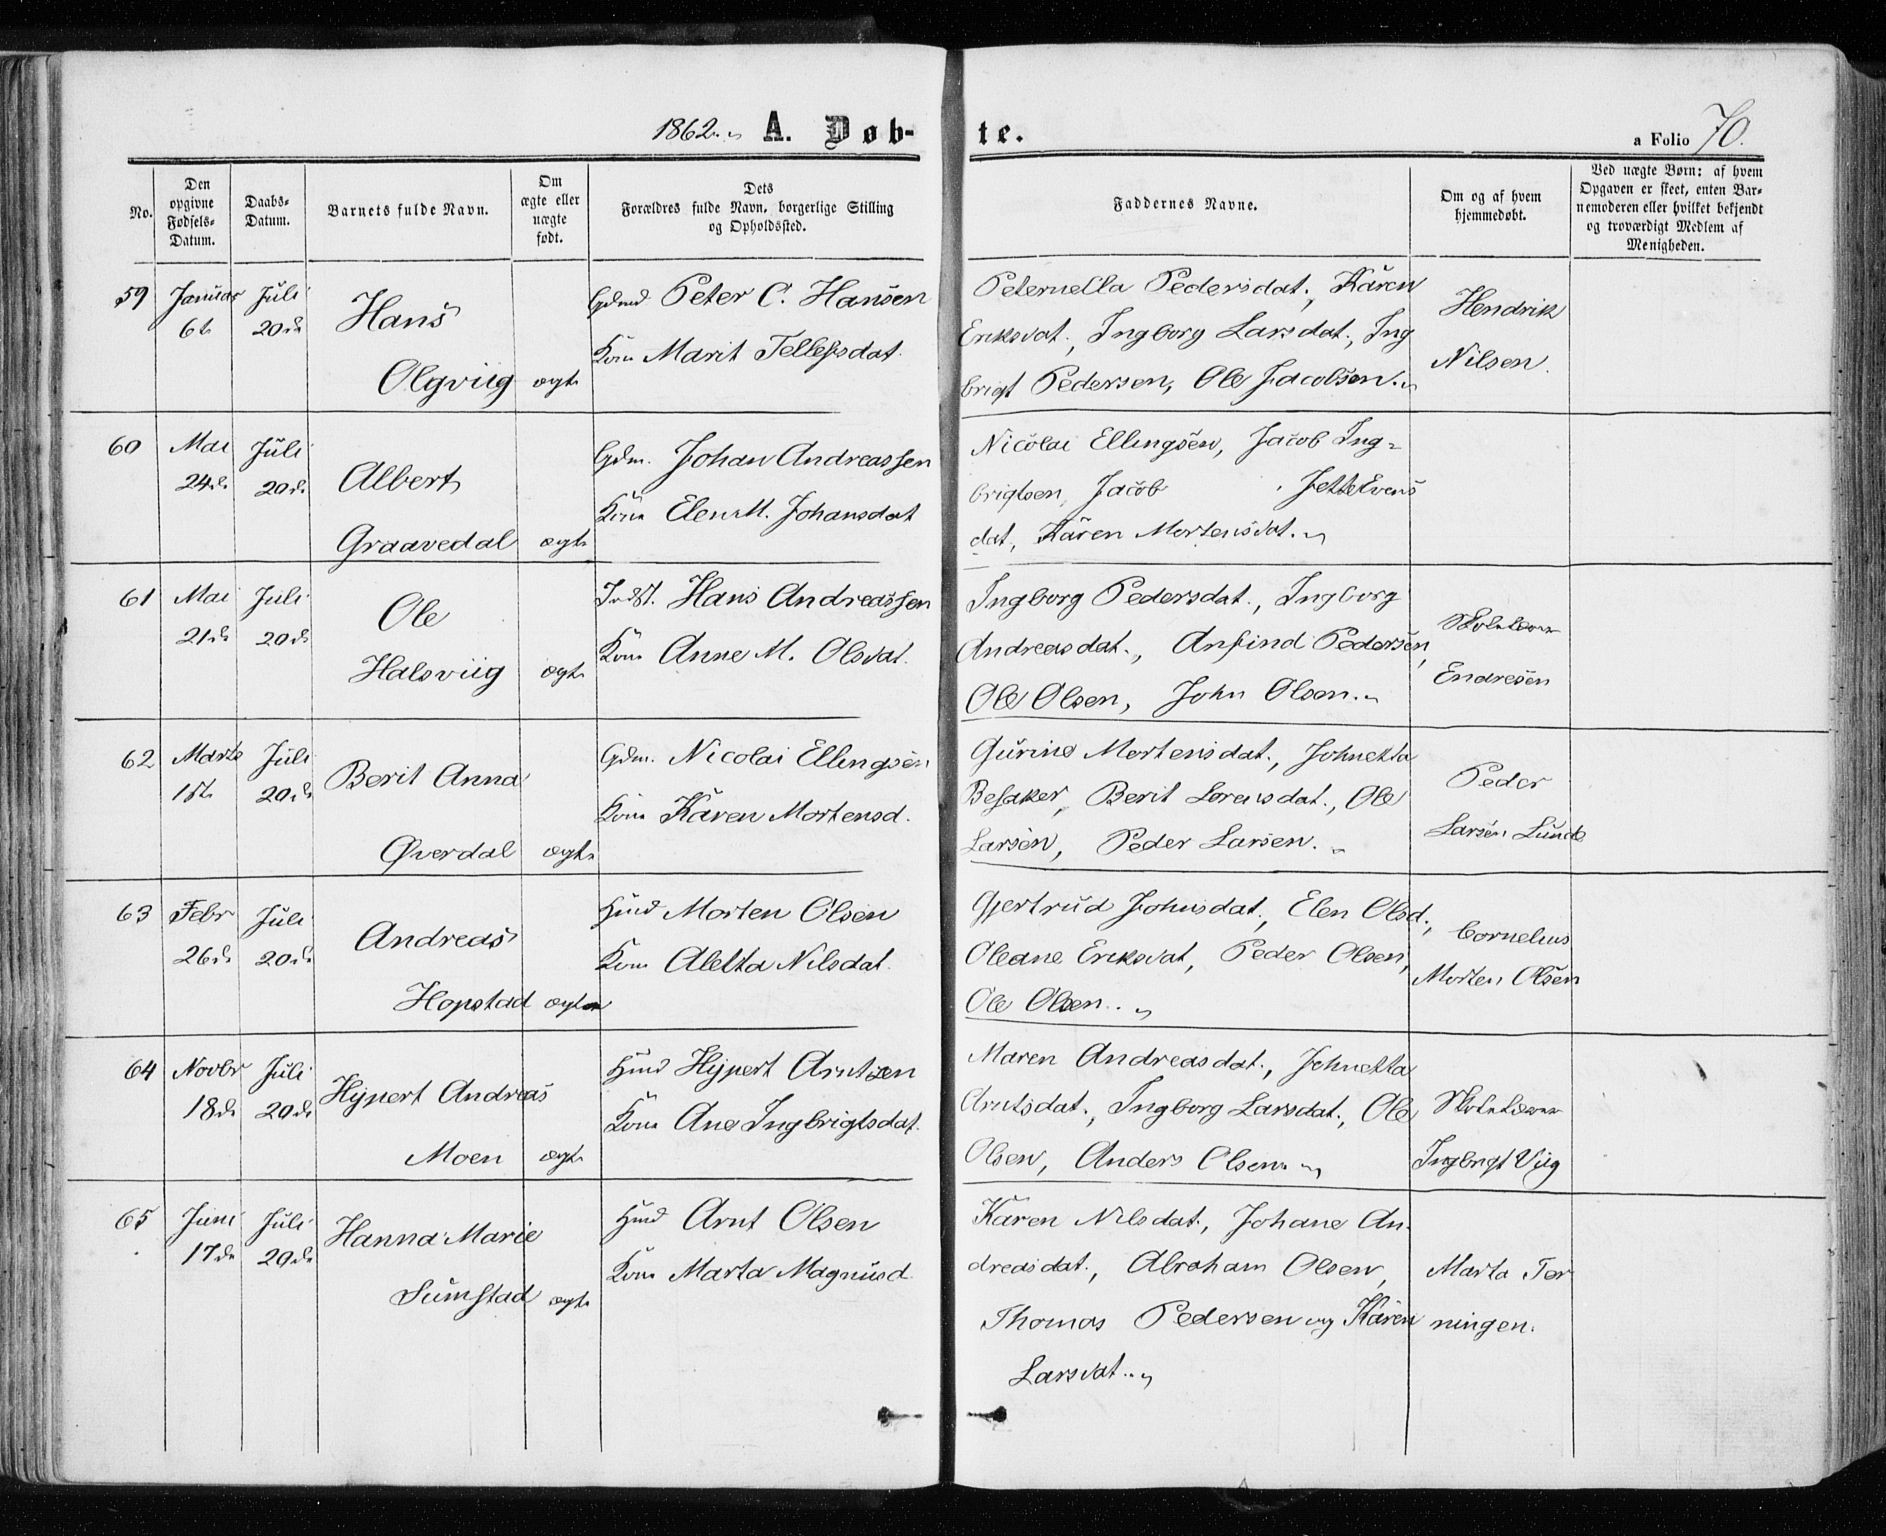 1862. A. Døb-
te.
a Folio 70.
No.
Den opgivne Fødsels-Datum.
Daabs-Datum.
Barnets fulde Navn.
Om ægte eller uægte født.
Dets Forældres fulde Navn, borgerlige Stilling og Opholdssted.
Faddernes Navne.
Om og af hvem hjemmedøbt.
Ved uægte Børn: af hvem Opgaven er skeet, enten Barnemoderen eller hvilket bekjendt og troværdigt Medlem af Menigheden.
59 Januar Juli
6t 20de
Hans
Olgviig ægte
Gdmd Peter C. Hansen
Kone Marit Tellefsdat.
Peternella Pedersdat., Karen
Eriksdat., Ingborg Larsdat., Ing
brigt Pedersen, Ole Jacobsen.
Hendrik
Nilsen.
60 Mai Juli
24de 20de
Albert
Graavedal ægte
Gdm. Johan Andreassen
Kone Elen M. Johansdat
Nicolai Ellingsen, Jacob Ing-
brigtsen, Jacob . Jette Evens
dat, Karen Mortensdat.
61 Mai Juli
21de 20de
Ole
Halsviig ægte
Indst. Hans Andreassen
Kone Anne M. Olsdat.
Ingborg Pedersdat., Ingborg
Andreasdat., Anfind Pedersen,
Ole Olsen, John Olsen.
Skolelærer
Endresen
62 Marts Juli
1st 20de
Berit Anna
Øverdal ægte
Gdm. Nicolai Ellingsen
Kone Karen Mortensd.
Gurine Mortensdat., Johnetta
Besaker, Berit Lorensdat., Ole
Larsen, Peder Larsen.
Peder
Larsen Lunde
63 Febr Juli
26de 20de
Andreas
Hopstad ægte
Huusmd Morten Olsen
Kone Aletta Nilsdat.
Gjertrud Johnsdat., Elen Olsd.,
Oleane Eriksdat, Peder Olsen,
Ole Olsen.
Cornelius
Morten Olsen
64 Novbr Juli
18de 20de
Hypert Andreas
Moen ægte
Huusmd Hypert Arntsen
Kone Ane Ingbrigtsdat.
Maren Andreasdat., Johnetta
Arntsdat., Ingborg Larsdat., Ole
Olsen, Anders Olsen.
Skolelærer
Ingbrigt Viig
65 Juni Juli
17de 20de
Hanna Marie
Sumstad ægte
Huusmd Arnt Olsen
Kone Marta Magnusd.
Karen Nilsdat., Johane An-
dreasdat., Abraham Olsen,
Thomas Pedersen og Karen
Larsdat.
Marta Ter
ningen.